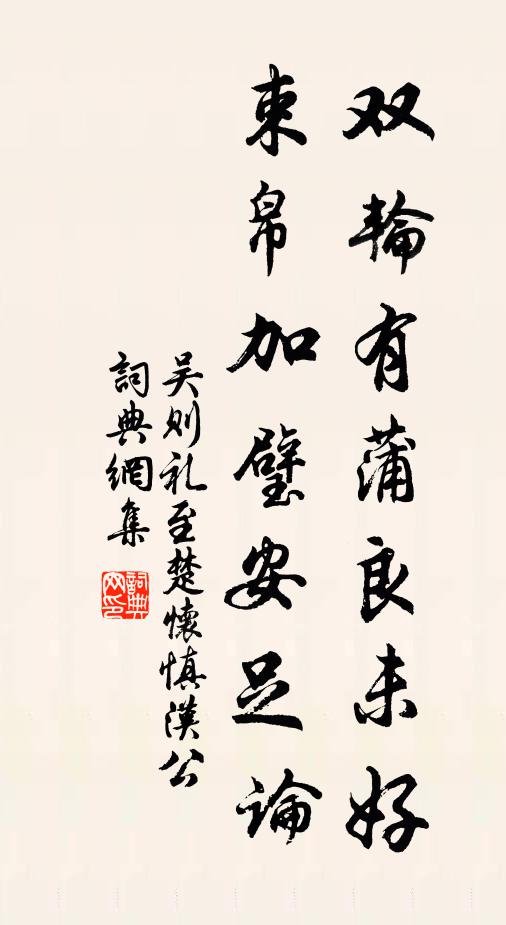 双輪有蒲良未好
束帛加璧安足論
吴则礼至楚懷慎漢公
詞典網集
詞典网印